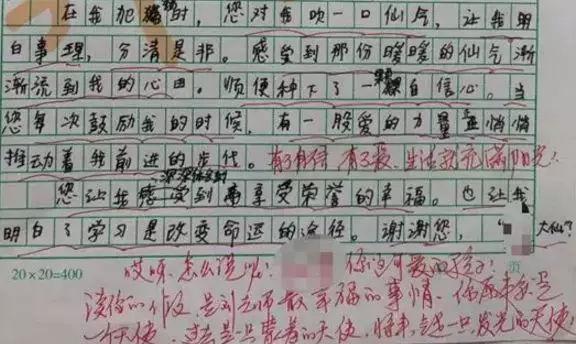 在我加油时，您对我吹一口仙气，让我明
白事理，分清是非。感受到那份暖暖的仙气渐
渐流到我的心田。顺便种下了一颗自信心。当
您每次鼓励我的时候，有一股爱的力量在悄悄
推动着我前进的步伐。有了自信，有了爱，生活就充满阳光！
深深体会到
您让我感受到高享受荣誉的幸福。也让我
明白了学习是改变命运的途径。谢谢您，“ 大仙？
20×20=400
哎呀，怎么说呢！ 你这可爱的孩子！
读你的作文，是刘老师最幸福的事情。你原来是
一个天使，过去是一只 着的天使，将来 是一只发光的天使